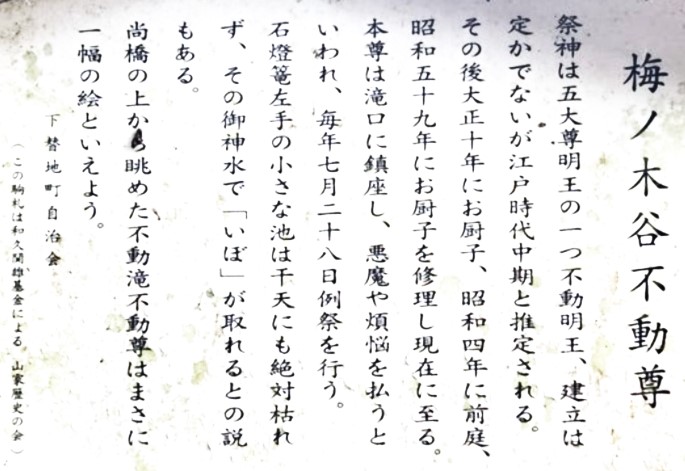 梅ノ木谷不動尊
祭神は五大尊明王の一つ不動明王、建立は
定かでないが江戸時代中期と推定される。
その後大正十年にお厨子、昭和四年に前庭、
昭和五十九年にお厨子を修理し現在に至る。
本尊は滝口に鎮座し、悪魔や煩悩を払うと
いわれ、毎年七月二十八日例祭を行う。
石燈篭左手の小さな池は干天にも絶対枯れ
ず、その御神水で「いぼ」が取れるとの説
もある。
尚橋の上から眺めた不動滝不動尊はまさに
一幅の絵といえよう。
下替地町自治会
(この駒札は和久間雄基金による 山家歴史の会)